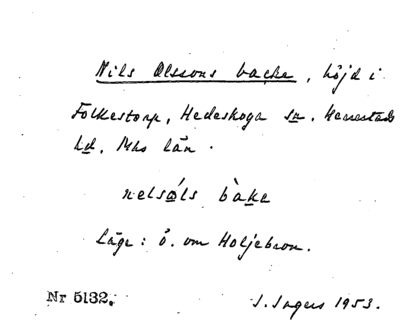 Nils Olssons backe, höjd i
Folkestorp, Hedeskoga sn. Herrestads
hd, Mhs län.
nelsóls bàke
Läge: ö. om Holjebron.
Nr 5132. I. Ingers 1953.